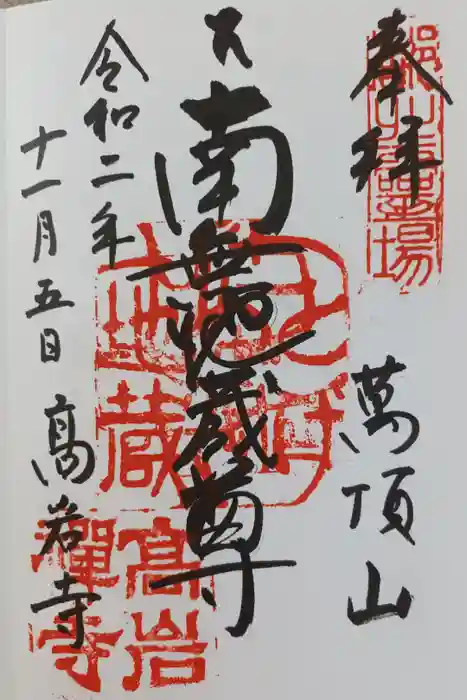 奉拝
萬頂山
南無地蔵尊
令和二年
十一月五日
高岩寺
地蔵
高岩
禅寺